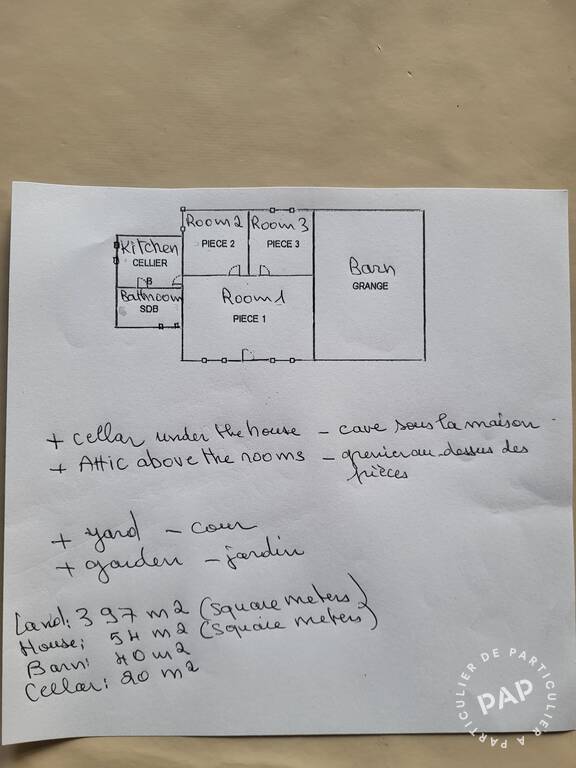 Room 2 Room 3
PIECE 2 PIECE 3
Kitchen
CELLIER
Bathroom
SDB
Room 1
PIECE 1
Barn
GRANGE
+ cellar under the house - cave sous la maison
+ Attic above the rooms - grenier au-dessus des
pièces
+ yard - cour
+ garden - jardin
Land: 397 m2 (square meters)
House: 54 m2 (square meters)
Barn: 40 m2
Cellar: 20 m2
DE PARTICULIER A PARTICULIER
PAP